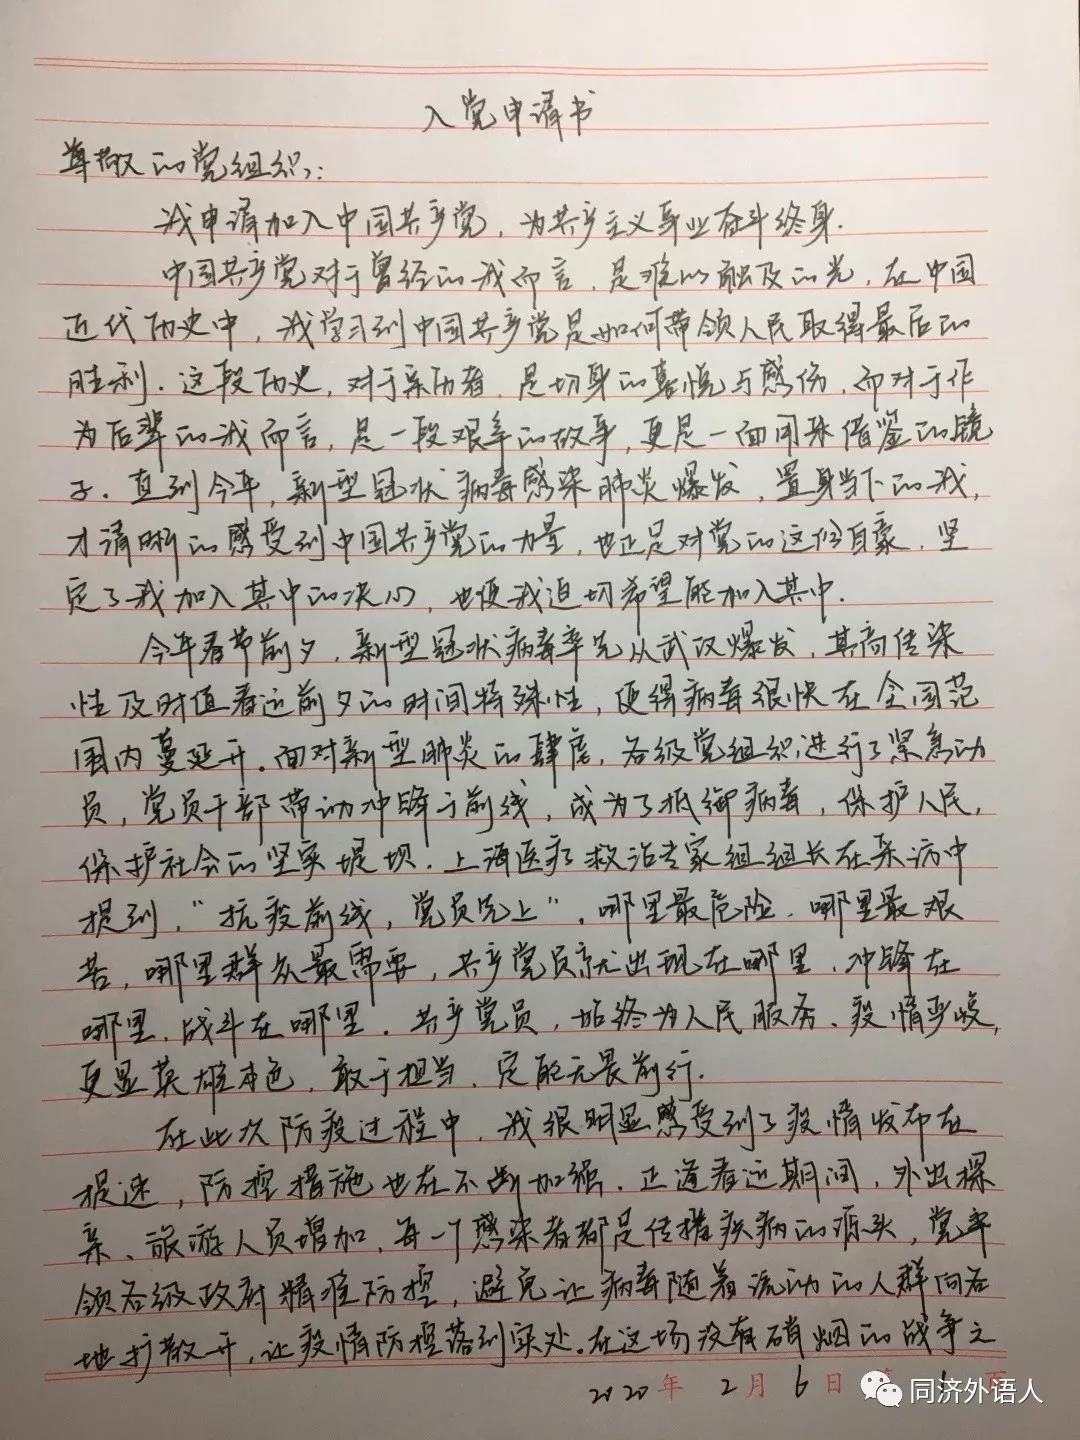 入党申请书
尊敬的党组织：
我申请加入中国共产党，为共产主义事业奋斗终身.
中国共产党对于曾经的我而言，是难以触及的光，在中国
近代历史中，我学习到中国共产党是如何带领人民取得最后的
胜利.这段历史，对于亲历者，是切身的喜悦与感伤，而对于作
为后辈的我而言，是一段艰辛的故事，更是一面用来借鉴的镜
子.直到今年，新型冠状病毒感染肺炎爆发，置身当下的我，
才清晰的感受到中国共产党的力量，也正是对党的这份自豪，坚
定了我加入其中的决心，也使我迫切希望能加入其中.
今年春节前夕，新型冠状病毒率先从武汉爆发，其高传染
性及时值春运前夕的时间特殊性，使得病毒很快在全国范
围内蔓延开.面对新型肺炎的肆虐，各级党组织进行了紧急动
员，党员干部带动冲锋于前线，成为了抵御病毒，保护人民，
保护社会的坚实堤坝.上海医疗救治专家组组长在采访中
提到，“抗疫前线，党员先上”，哪里最危险，哪里最艰
苦，哪里群众最需要，共产党员就出现在哪里，冲锋在
哪里，战斗在哪里.共产党员，始终为人民服务.疫情严峻，
更显英雄本色，敢于担当，定能无畏前行.
在此次防疫过程中，我很明显感受到了疫情发布在
提速，防控措施也在不断加强.正道春运期间，外出探
亲、旅游人员增加，每一个感染者都是传播疾病的源头，党率
领各级政府精准防控，避免让病毒随着流动的人群向各
地扩散开，让疫情防控落到实处.在这场没有硝烟的战争之
2020年 2月 6日 第 1 页
同济外语人